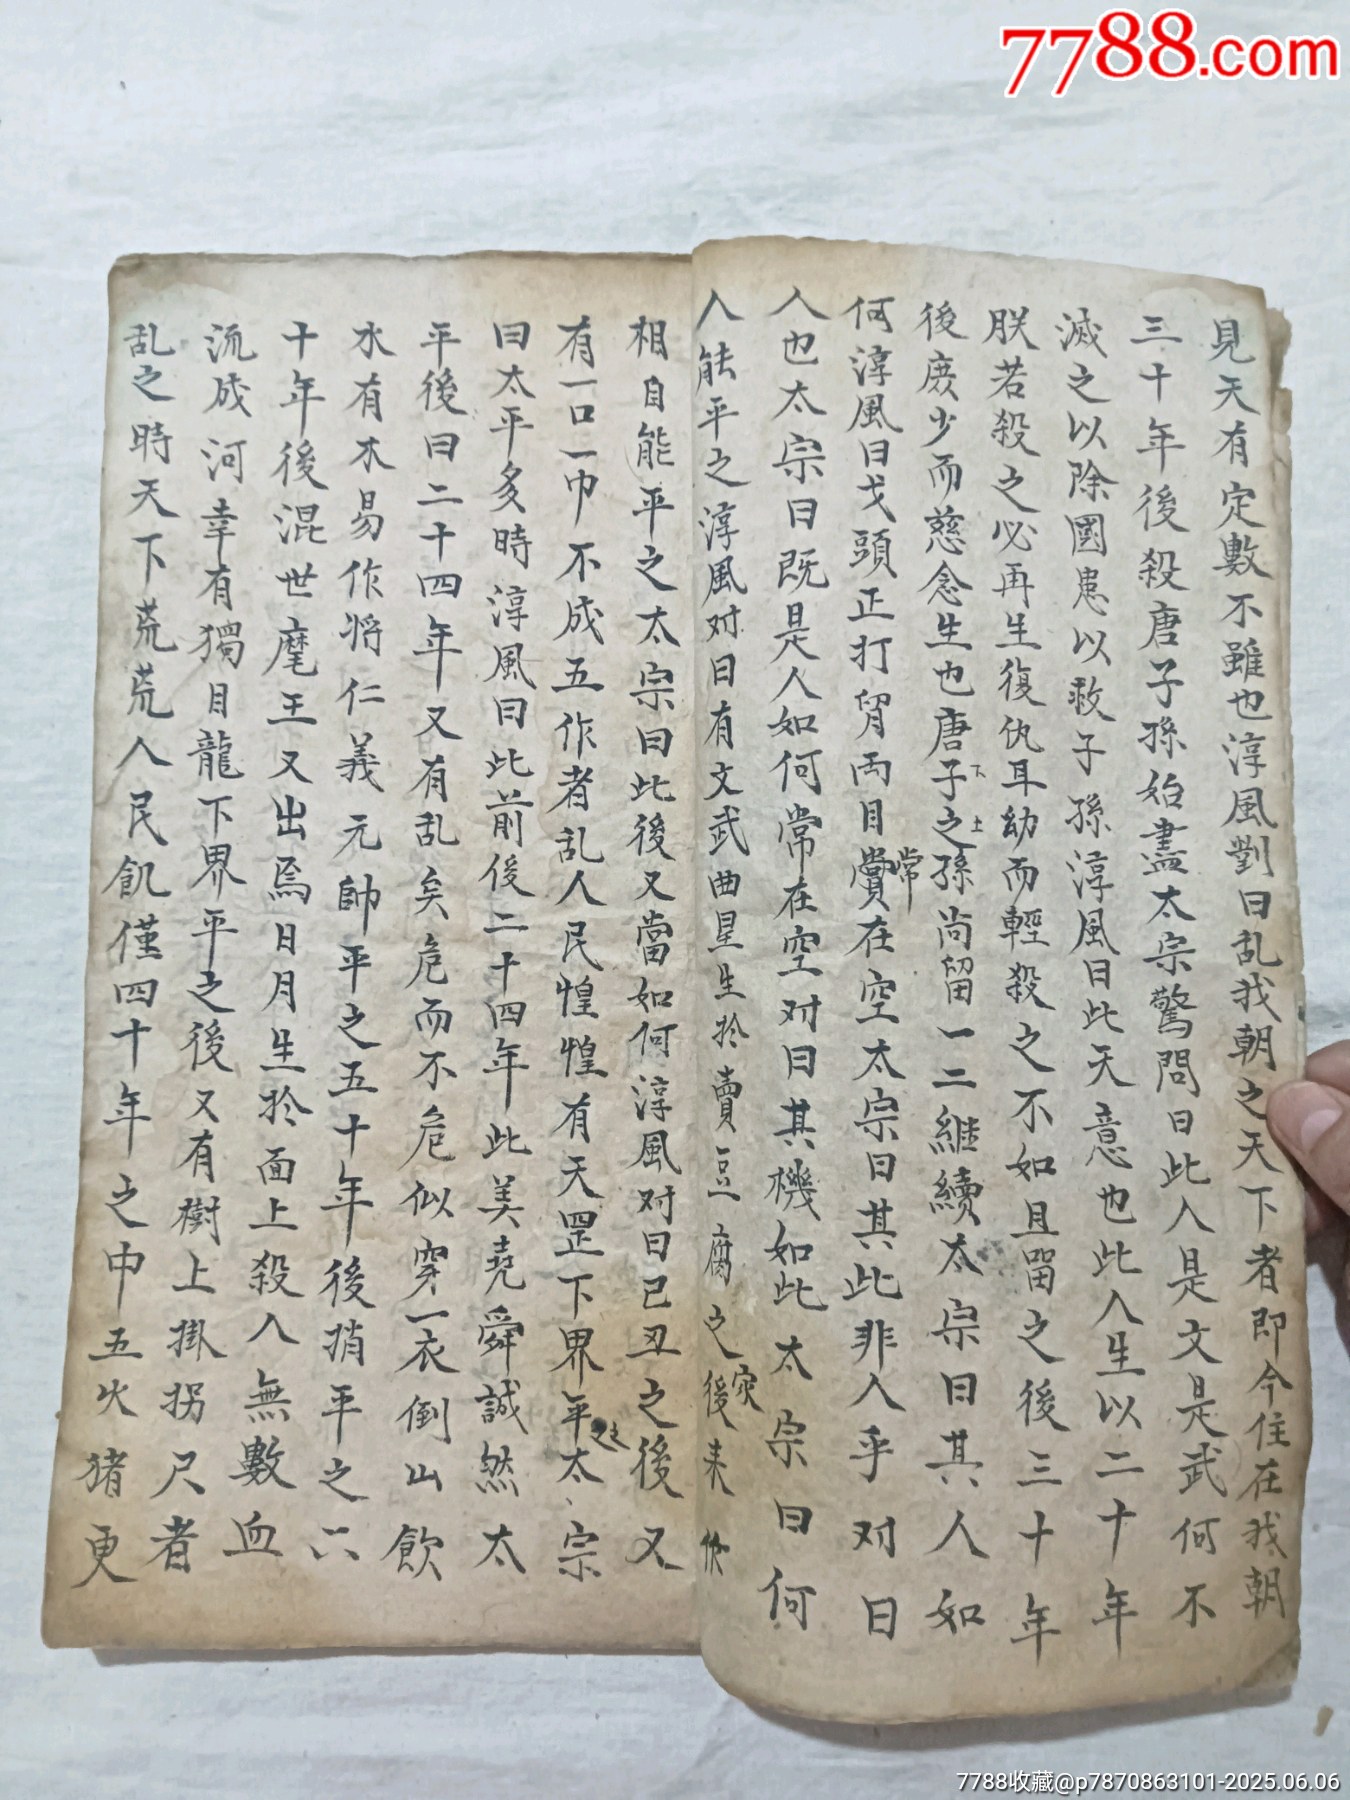 7788.com
見天有定數不雖也淳風對曰乱我朝之天下者即今住在我朝
三十年後殺唐子孫始盡太宗驚問曰此人是文是武何不
滅之以除國患以救子孫淳風曰此天意也此人生以二十年
朕若殺之必再生復仇耳幼而輕殺之不如且留之後三十年
後庶少而慈念生也唐子之孫尚留一二維續太宗曰其人如
何淳風曰戈頭正打肾両目常在空太宗曰其此非人乎对曰
人也太宗曰既是人如何常在空对曰其機如此太宗曰何
人能平之淳風对曰有文武曲星生扵賣豆腐之後来
相自能平之太宗曰此後又當如何淳風对曰已丑之後又
有一口一巾不成五作者乱人民惶惶有天罡下界平之太宗
曰太平多時淳風曰此前後二十四年此美堯舜誠然太
平後曰二十四年又有乱矣危而不危似穿一衣倒山飲
水有木易作将仁義元帥平之五十年後捎平之六
十年後混世麾王又出焉日月生扵面上殺人無數血
流成河幸有獨目龍下界平之後又有樹上掛拐尺者
乱之時天下荒荒人民飢僅四十年之中五火猪更
7788收藏@p7870863101-2025.06.06